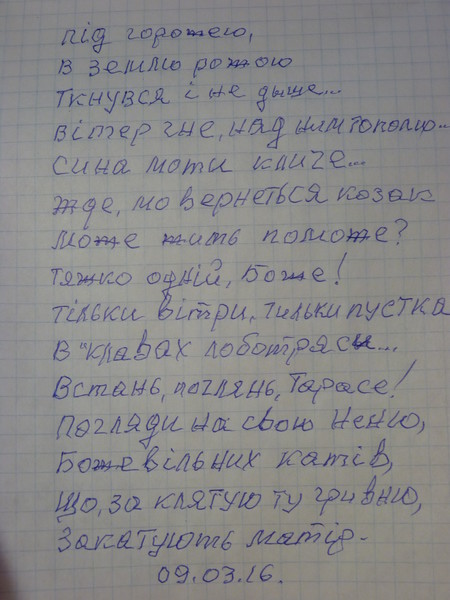 під горожею,
в землю рожою
ткнувся і не дыше...
вітер гне, над ним тополю...
сина моти кличе...
жде, мо вернеться козак
може жить поможе?
тяжко одній, Боже!
тільки вітри, тильки пустка
в "кравах лоботряси...
Встань, поглянь, Тарасе!
Погляди на свою ненью,
Божевільних катів,
Що, за клятую ту гривню,
Закатують матір.
09.03.16.